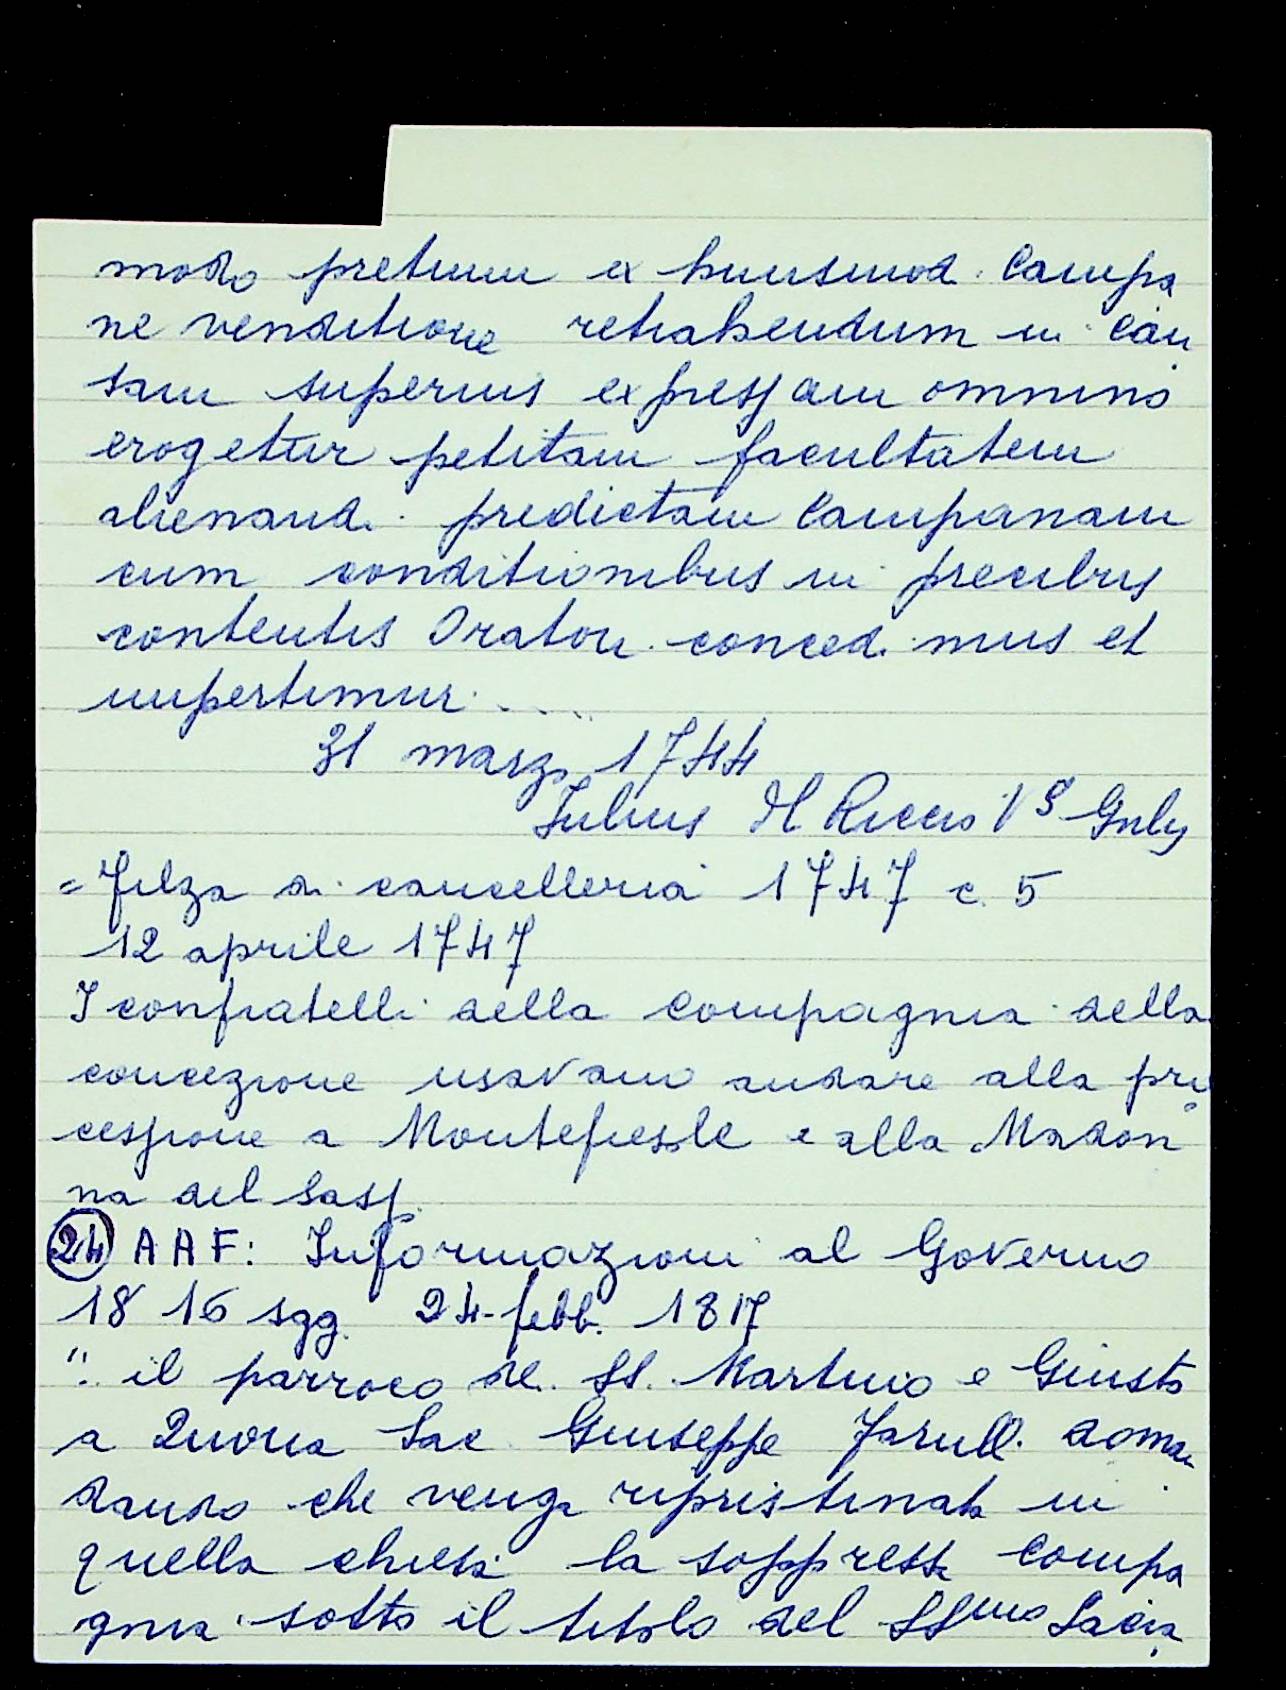 modo pretium ex huiusmod. Campa
ne venditione retrahendum in cau
sam superius expressam omnino
erogetur petitam facultatem
alienandi predictam Campanam
cum conditionibus in precibus
contentis Oratori concedimus et
impertimur....
31 marzo 1744
Julius Il Riccio
= Filza di cancelleria 1747 c. 5
12 aprile 1747
I confratelli della compagnia della
concezione usavano andare alla pro
cessione a Montefiesole e alla Madon
na del Sasso
24 AAF: Informazioni al Governo
1816 sgg. 24 febb. 1817
": il parroco de SS. Martino e Giusto
a Quona Sac. Giuseppe doman
dando che venga ripristinata in
quella chiesa la soppressa compa
gnia sotto il titolo del SSmo Sacra